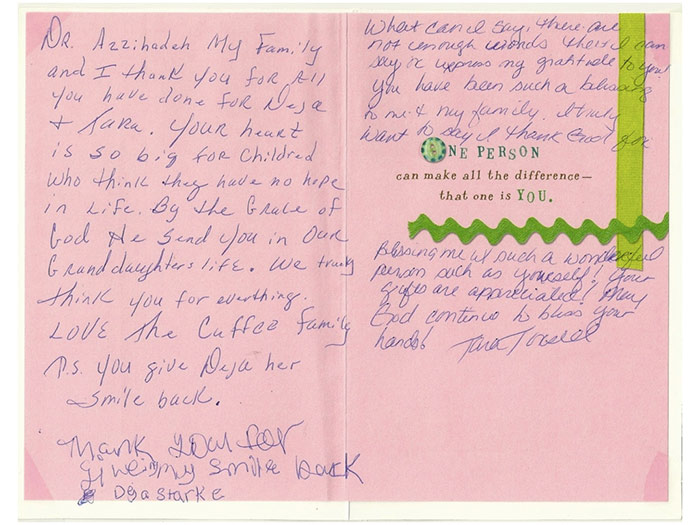 DR. Azzihadeh My Family
and I thank you for All
you have done for Deja
+ Tara. Your heart
is so big for children
who think they have no hope
in life. By the Grace of
God He send you in Our
Granddaughters life. We truely
think you for everthing.
Love The Cuffee Family
P.S. you give Deja her
smile back.
Thank your for
giveing my smile back
Deja Starke
What can I say, there are
not enough words that I can
say or express my gratitude to you!
You have been such a blessing
to me & my family. I truly
want to say I thank God for
ONE PERSON
can make all the difference—
that one is YOU.
Blessing me w/ such a wonderful
person such as yourself! Your
gifts are appreciated! May
God continue to bless your
hands! Tara